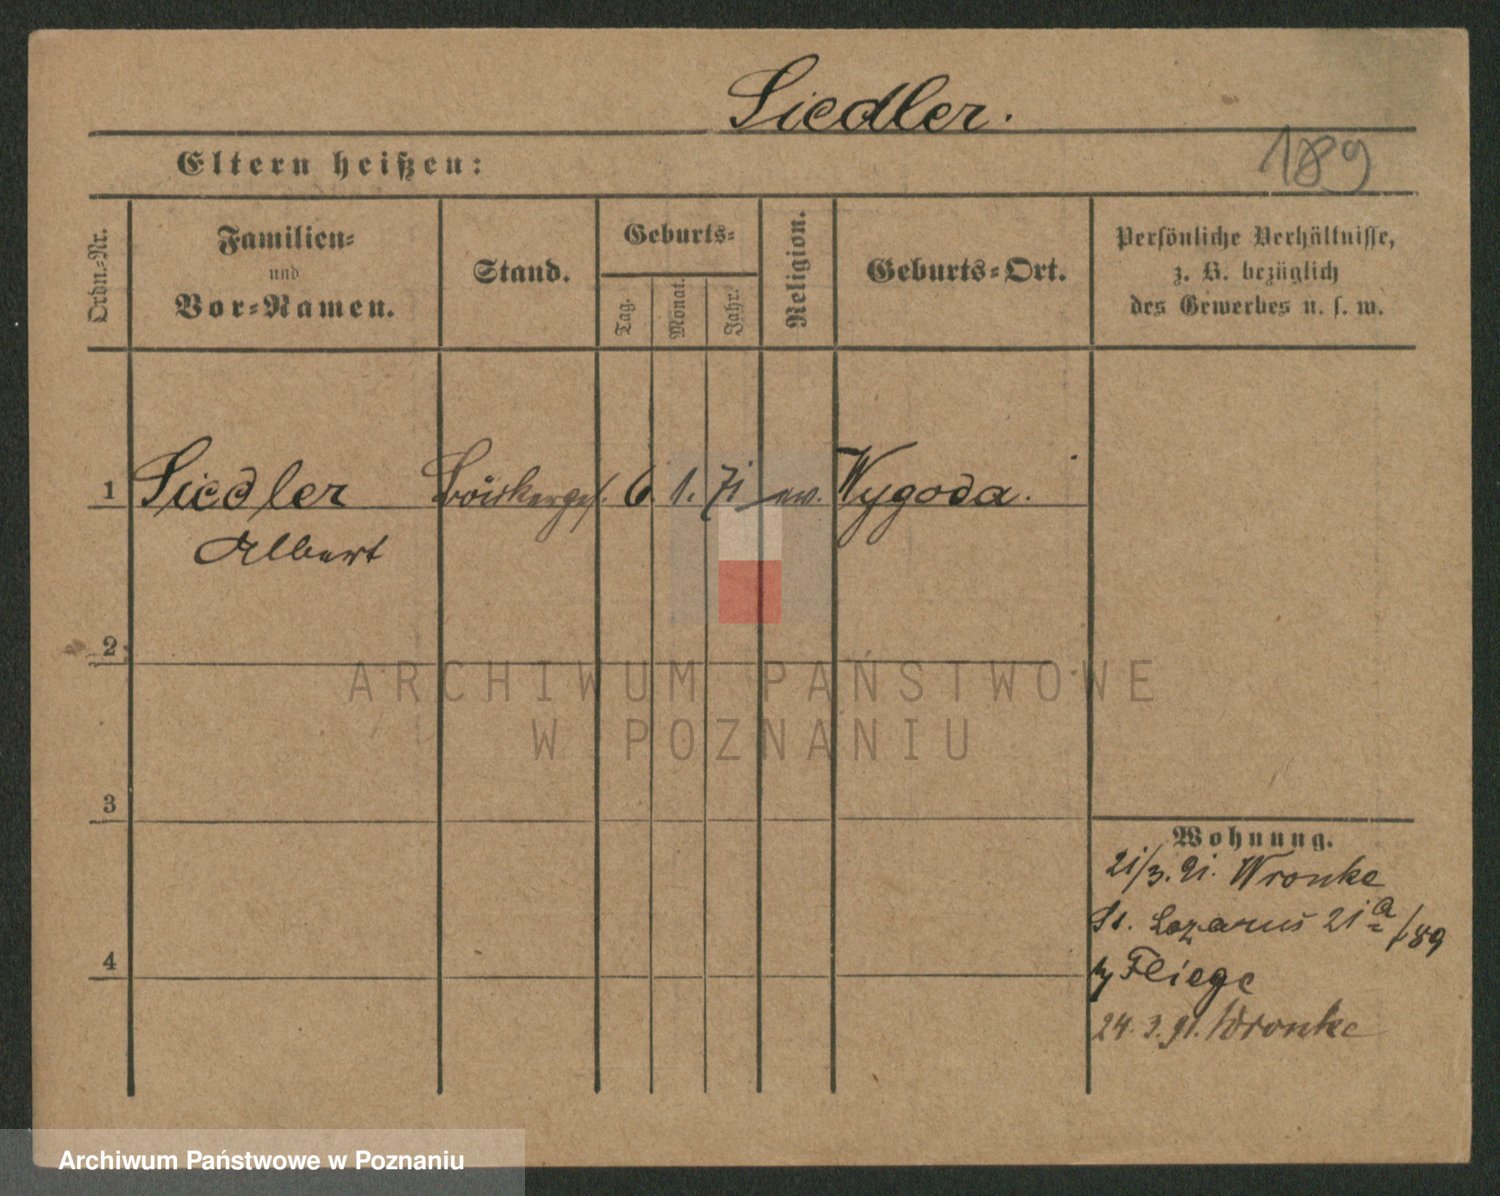 Siedler.
Eltern heißen:
189
Ordn.-Nr.
Familien-
und
Vor-Namen.
Stand.
Geburts-
Tag.
Monat.
Jahr.
Religion.
Geburts-Ort.
Persönliche Verhältnisse,
z. B. bezüglich
des Gewerbes u. s. w.
1 Siedler 6. 1. 71 ev. Wygoda.
Albert
2
ARCHIWUM PAŃSTWOWE
W POZNANIU
3
Wohnung.
21/3. 91. Wronke
St. Lazarus 21 a/189
Fliege
4
24. 3. 91. Wronke
Archiwum Państwowe w Poznaniu